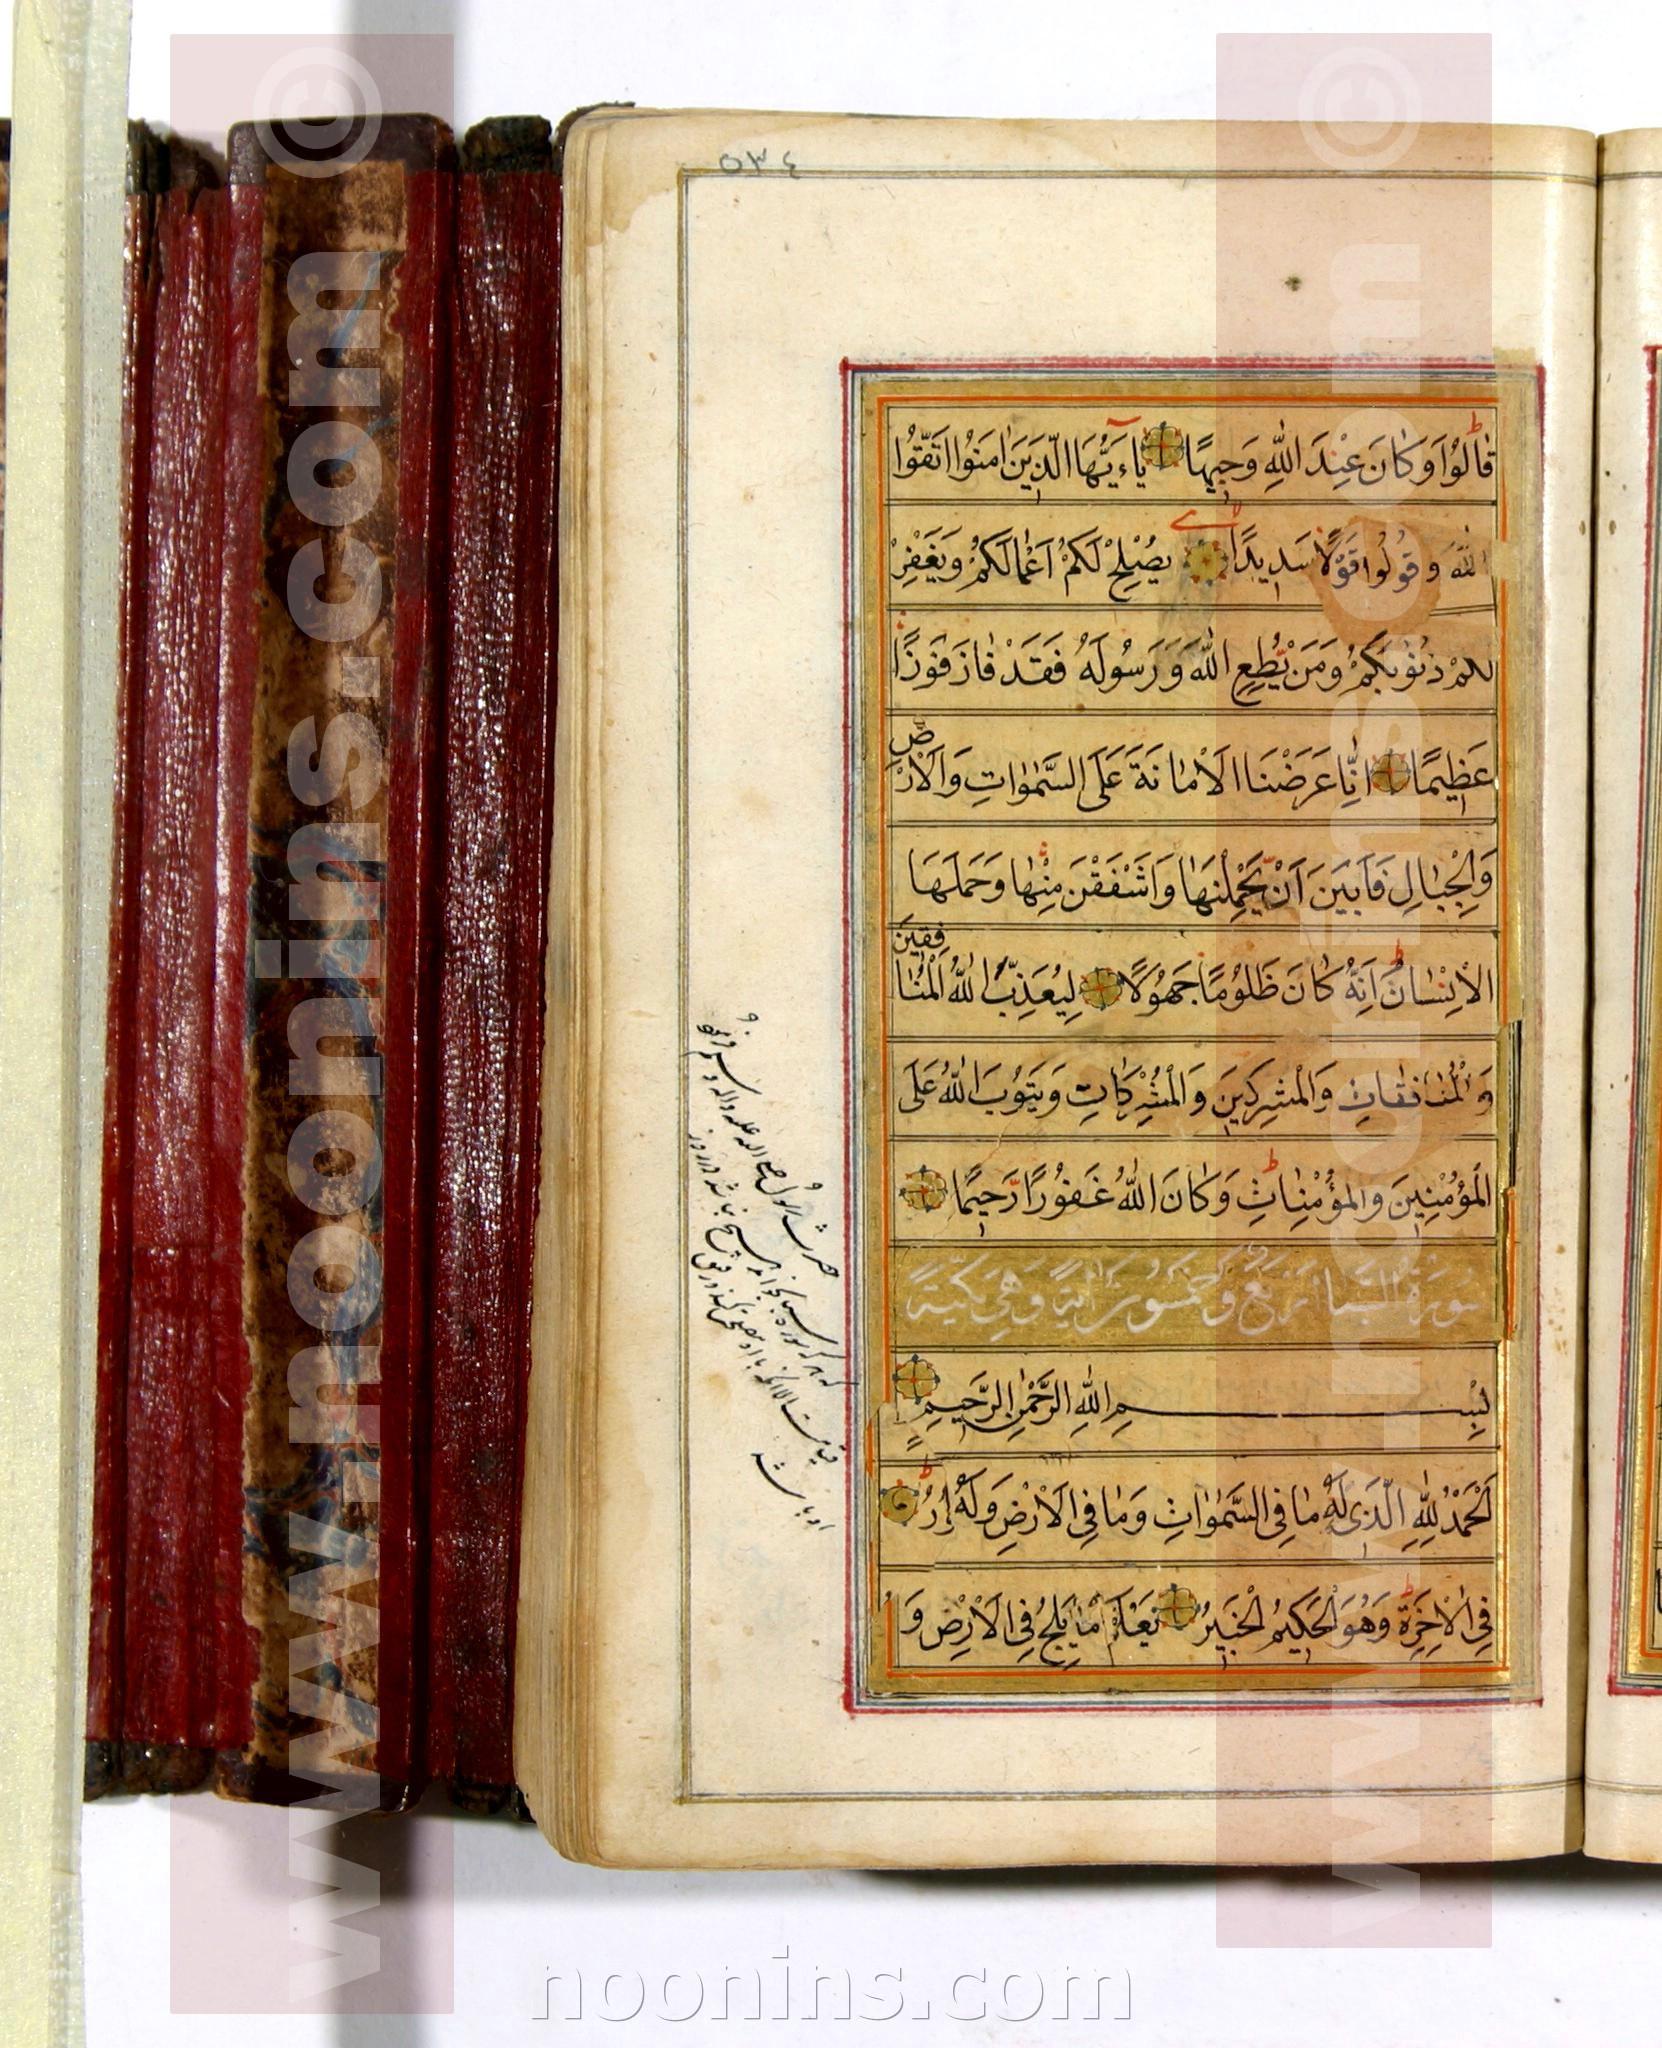 ٥٣٤
قٰالُوْا وَكٰانَ عِنْدَ اللّٰهِ وَجيهًا يٰاءَيُّهَا الَّذينَ اٰمَنُوا اتَّقُوا
اللّٰهَ وَقُولُوا قَوْلًا سَديدًا يُصْلِحْ لَكُمْ اَعْمٰالَكُمْ وَيَغْفِرْ
لَكُمْ ذُنُوبَكُمْ وَمَنْ يُطِعِ اللّٰهَ وَرَسُولَهُ فَقَدْ فٰازَ فَوْزًا
عَظيمًا اِنّٰا عَرَضْنَا الْاَمٰانَةَ عَلَى السَّمٰوٰاتِ وَالْاَرْضِ
وَالْجِبٰالِ فَاَبَيْنَ اَنْ يَحْمِلْنَهٰا وَاَشْفَقْنَ مِنْهٰا وَحَمَلَهَا
الْاِنْسٰانُ اِنَّهُ كٰانَ ظَلُومًا جَهُولًا لِيُعَذِّبَ اللّٰهُ الْمُنٰافِقينَ
وَالْمُنٰافِقٰاتِ وَالْمُشْرِكينَ وَالْمُشْرِكٰاتِ وَيَتُوبَ اللّٰهُ عَلَى
الْمُؤْمِنينَ وَالْمُؤْمِنٰاتِ وَكٰانَ اللّٰهُ غَفُورًا رَحيمًا
سورة السبا اربع و خمسون اية وهي مكية
بِسْمِ اللّٰهِ الرَّحْمٰنِ الرَّحيمِ
اَلْحَمْدُ لِلّٰهِ الَّذى لَهُ مٰا فِى السَّمٰوٰاتِ وَمٰا فِى الْاَرْضِ وَلَهُ الْحَمْدُ
فِى الْاٰخِرَةِ وَهُوَ الْحَكيمُ الْخَبيرُ يَعْلَمُ مٰا يَلِجُ فِى الْاَرْضِ وَ
حضرت رسول صلى الله عليه واله وسلم فرمود
كه هر كه سوره سبا بخواند
قيامت
او باشد
www.noonins.com ©
www.noonins.com ©
noonins.com